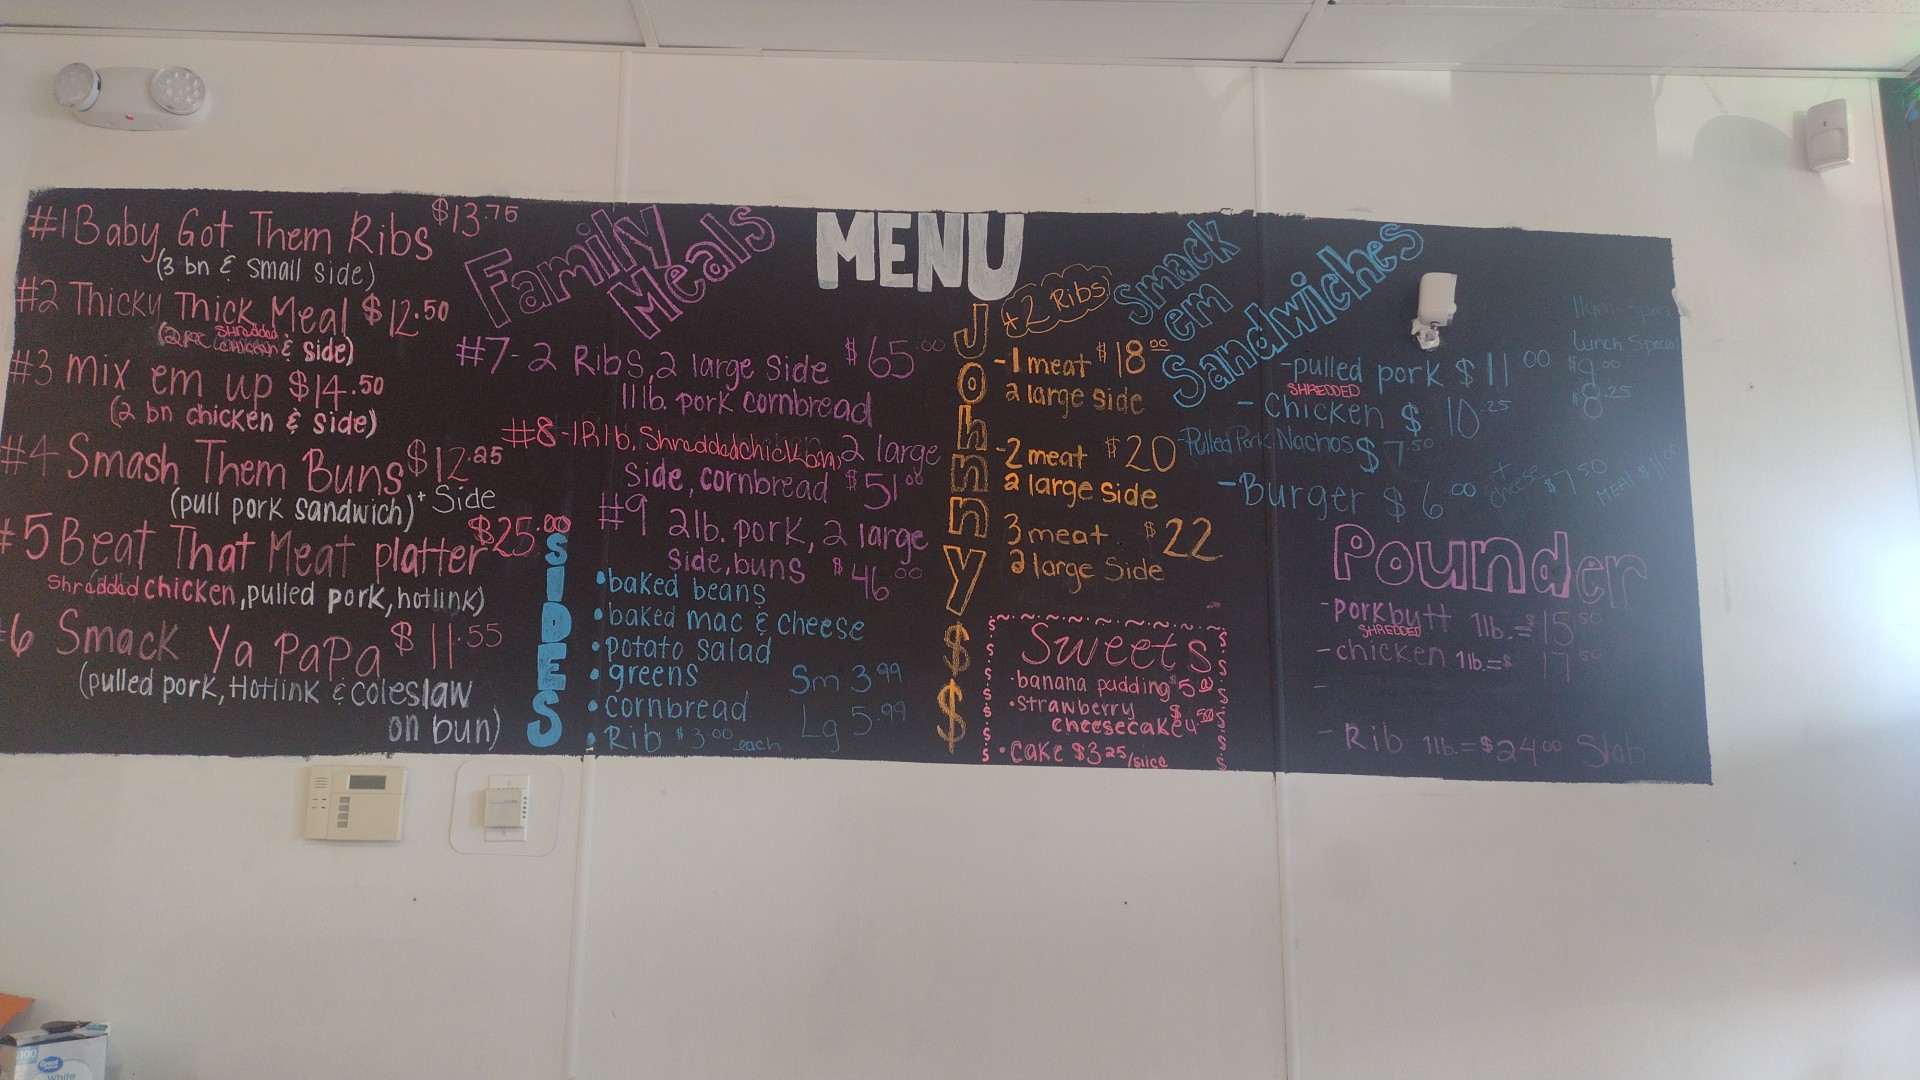 MENU
#1 Baby Got Them Ribs $13.75
(3 bn & small side)
#2 Thicky Thick Meal $12.50
Shredded
chicken & side)
#3 mix em up $14.50
(2 bn chicken & side)
#4 Smash Them Buns $12.25
(pull pork sandwich) + Side
#5 Beat That Meat platter $25.00
Shradded chicken, pulled pork, hotlink)
#6 Smack Ya PaPa $11.55
(pulled pork, Hotlink & coleslaw
on bun)
Family
Meals
#7- 2 Ribs, 2 large Side $65.00
1lb. pork cornbread
#8-1Rib, Shradded chick bn, 2 large
side, cornbread $51.00
#9 2lb. pork, 2 large
side, buns $46.00
SIDES
• baked beans
• baked mac & cheese
• potato salad
• greens
• cornbread
• Rib $3.00 each
Sm 3.99
Lg 5.99
Johnny $$
+2 Ribs
-1 meat $18.00
2 large side
-2 meat $20
2 large side
3 meat $22
2 large Side
Sweets
• banana pudding $5.00
• strawberry
cheesecake $4.50
• cake $3.25/slice
Smack
em
Sandwiches
-pulled pork $11.00
SHREDDED
- Chicken $10.25
-Pulled Pork Nachos $7.50
-Burger $6.00
+ cheese $7.50
MEAL $11.00
Lunch Special
$9.00
$8.25
Pounder
-pork butt 1lb.=$15.50
SHREDDED
-chicken 1lb.=$17.50
-
-Rib 1lb.=$24.00 Slab
Great Value
White
100